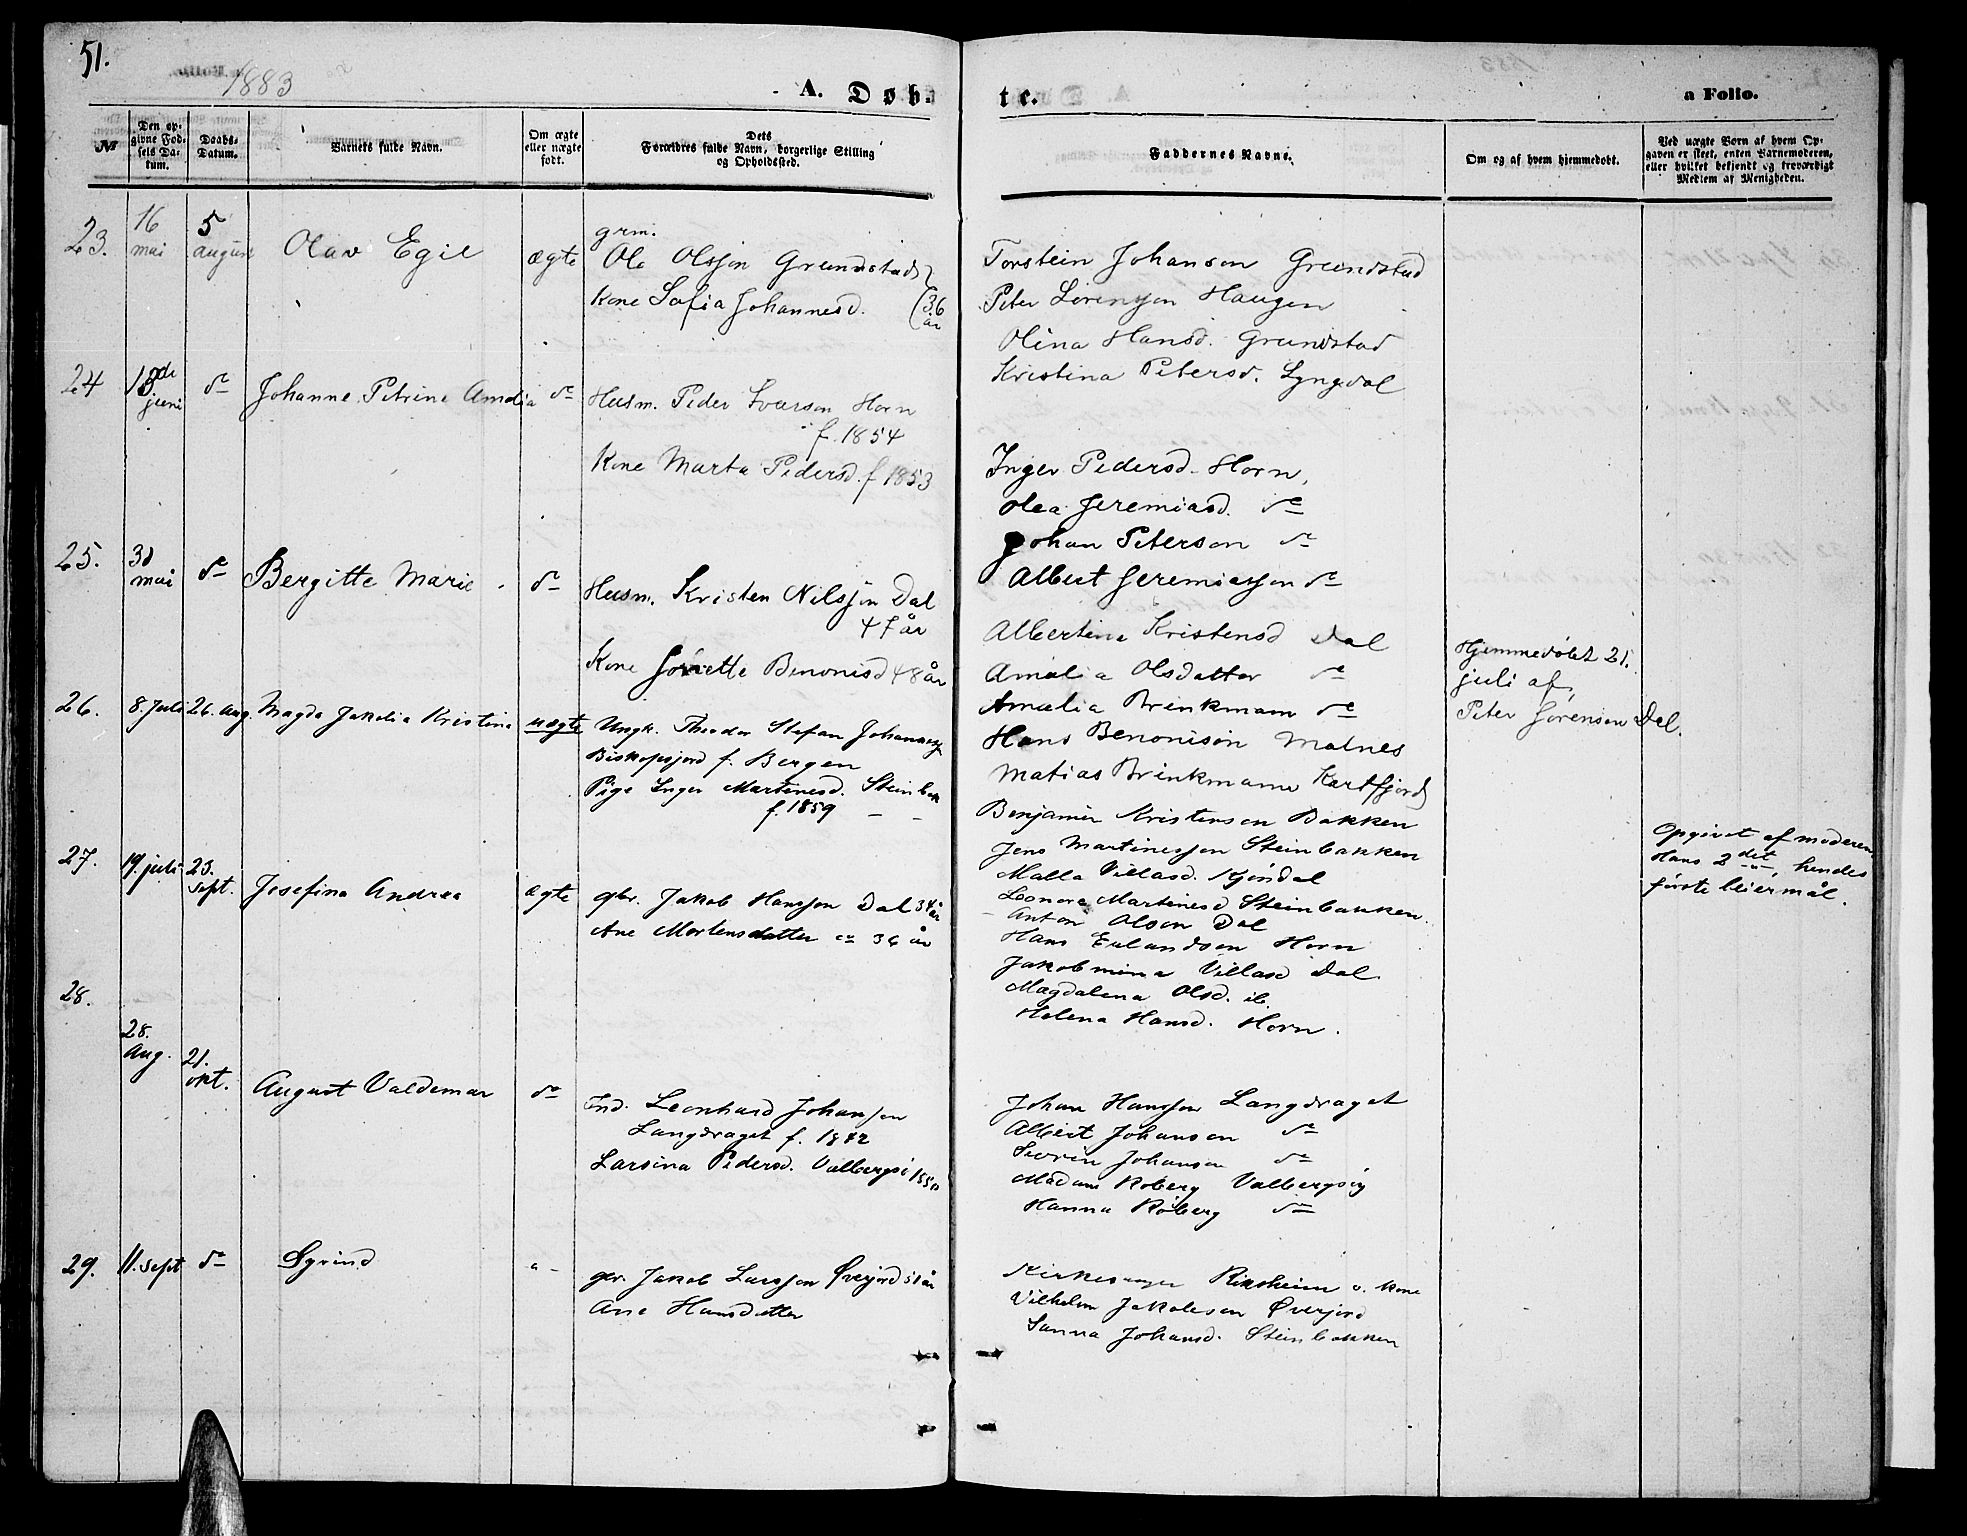 51.
1883
A. Døb-
te.
a Folio.
№
Den op-
givne Fød-
sels Da-
tum.
Daabs-
Datum.
Barnets fulde Navn.
Om ægte
eller uægte
født.
Dets
Forældres fulde Navn, borgerlige Stilling
og Opholdssted.
Faddernes Navne.
Om og af hvem hjemmedøbt.
Ved uægte Børn af hvem Op-
gaven er skeet, enten Barnemoderen,
eller hvilket bekjendt og troværdigt
Medlem af Menigheden.
23.
16
mai
5
august
Olav Egil
ægte
grm.
Ole Olsson Grundstad
Kone Sofia Johannesd.
36
år
Torstein Johanson Grundstad
Peter Lorensson Haugen
Olina Hansd. Grundstad
Kristina Petersd. Lyngdal
24
juni
do
Johanne Petrine Amalia
do
Husm. Peder Ivarson Horn
f. 1854
Kone Marta Pedersd. f 1853
Inger Pedersd. Horn,
Olea Jeremiasd. do
Johan Peterson do
Albert Jeremiasson do
25.
mai
do
Bergitte Marie
do
Husm. Kristen Nilsson Dal
47 år
Kone Benonisd 48 år
Albertine Kristensd Dal
Amalia Olsdatter do
Amalia Brinkmann do
Hans Benonison Malnes
Matias Brinkmann Kartfjord
Hjemmedøbt 21.
juli af
Peter Sørenson Dal.
26.
8. Juli
26. Aug.
Magda Jakolia Kristina
uægte
Ungk. Theodor Stefan Johanness
f. Bergen
Pige Inger Martinesd. Steinbak
f. 1859
Benjamin Kristenson Bakken
Jens Martinesson Steinbakken
Malla Villasd.
Leonora Martinesd Steinbakken.
Opgivet af moderen
Hans 2det, hendes
første leiermål.
27.
19. juli
23.
Sept.
Josefina Andrea
ægte
gbr. Jakob Hansson Dal 34 år
Ane Mortensdatter 36 år
Anton Olson Dal
Hans Erlandson Horn
Jakobmina Villasd Dal.
Magdalena Olsd. ib.
Helena Hansd. Horn.
28.
28.
Aug.
21.
okt.
August Valdemar
do
Ind. Leonhard Johansson
Langdraget f. 1842
Larsina Pedersd.
Johan Hansson Langdraget
Albert Johanson do
Sverin Johanson do
Madam Roberg Valbergsøy
Hanna Roberg do
29.
11. Sept
do
gbr. Jakob Larsson Øverjord 51 år
Ane Hansdatter
Kirkesanger Riksheim o. kone
Vilhelm Jakobson Øverjord
Sanna Johansd. Steinbakken